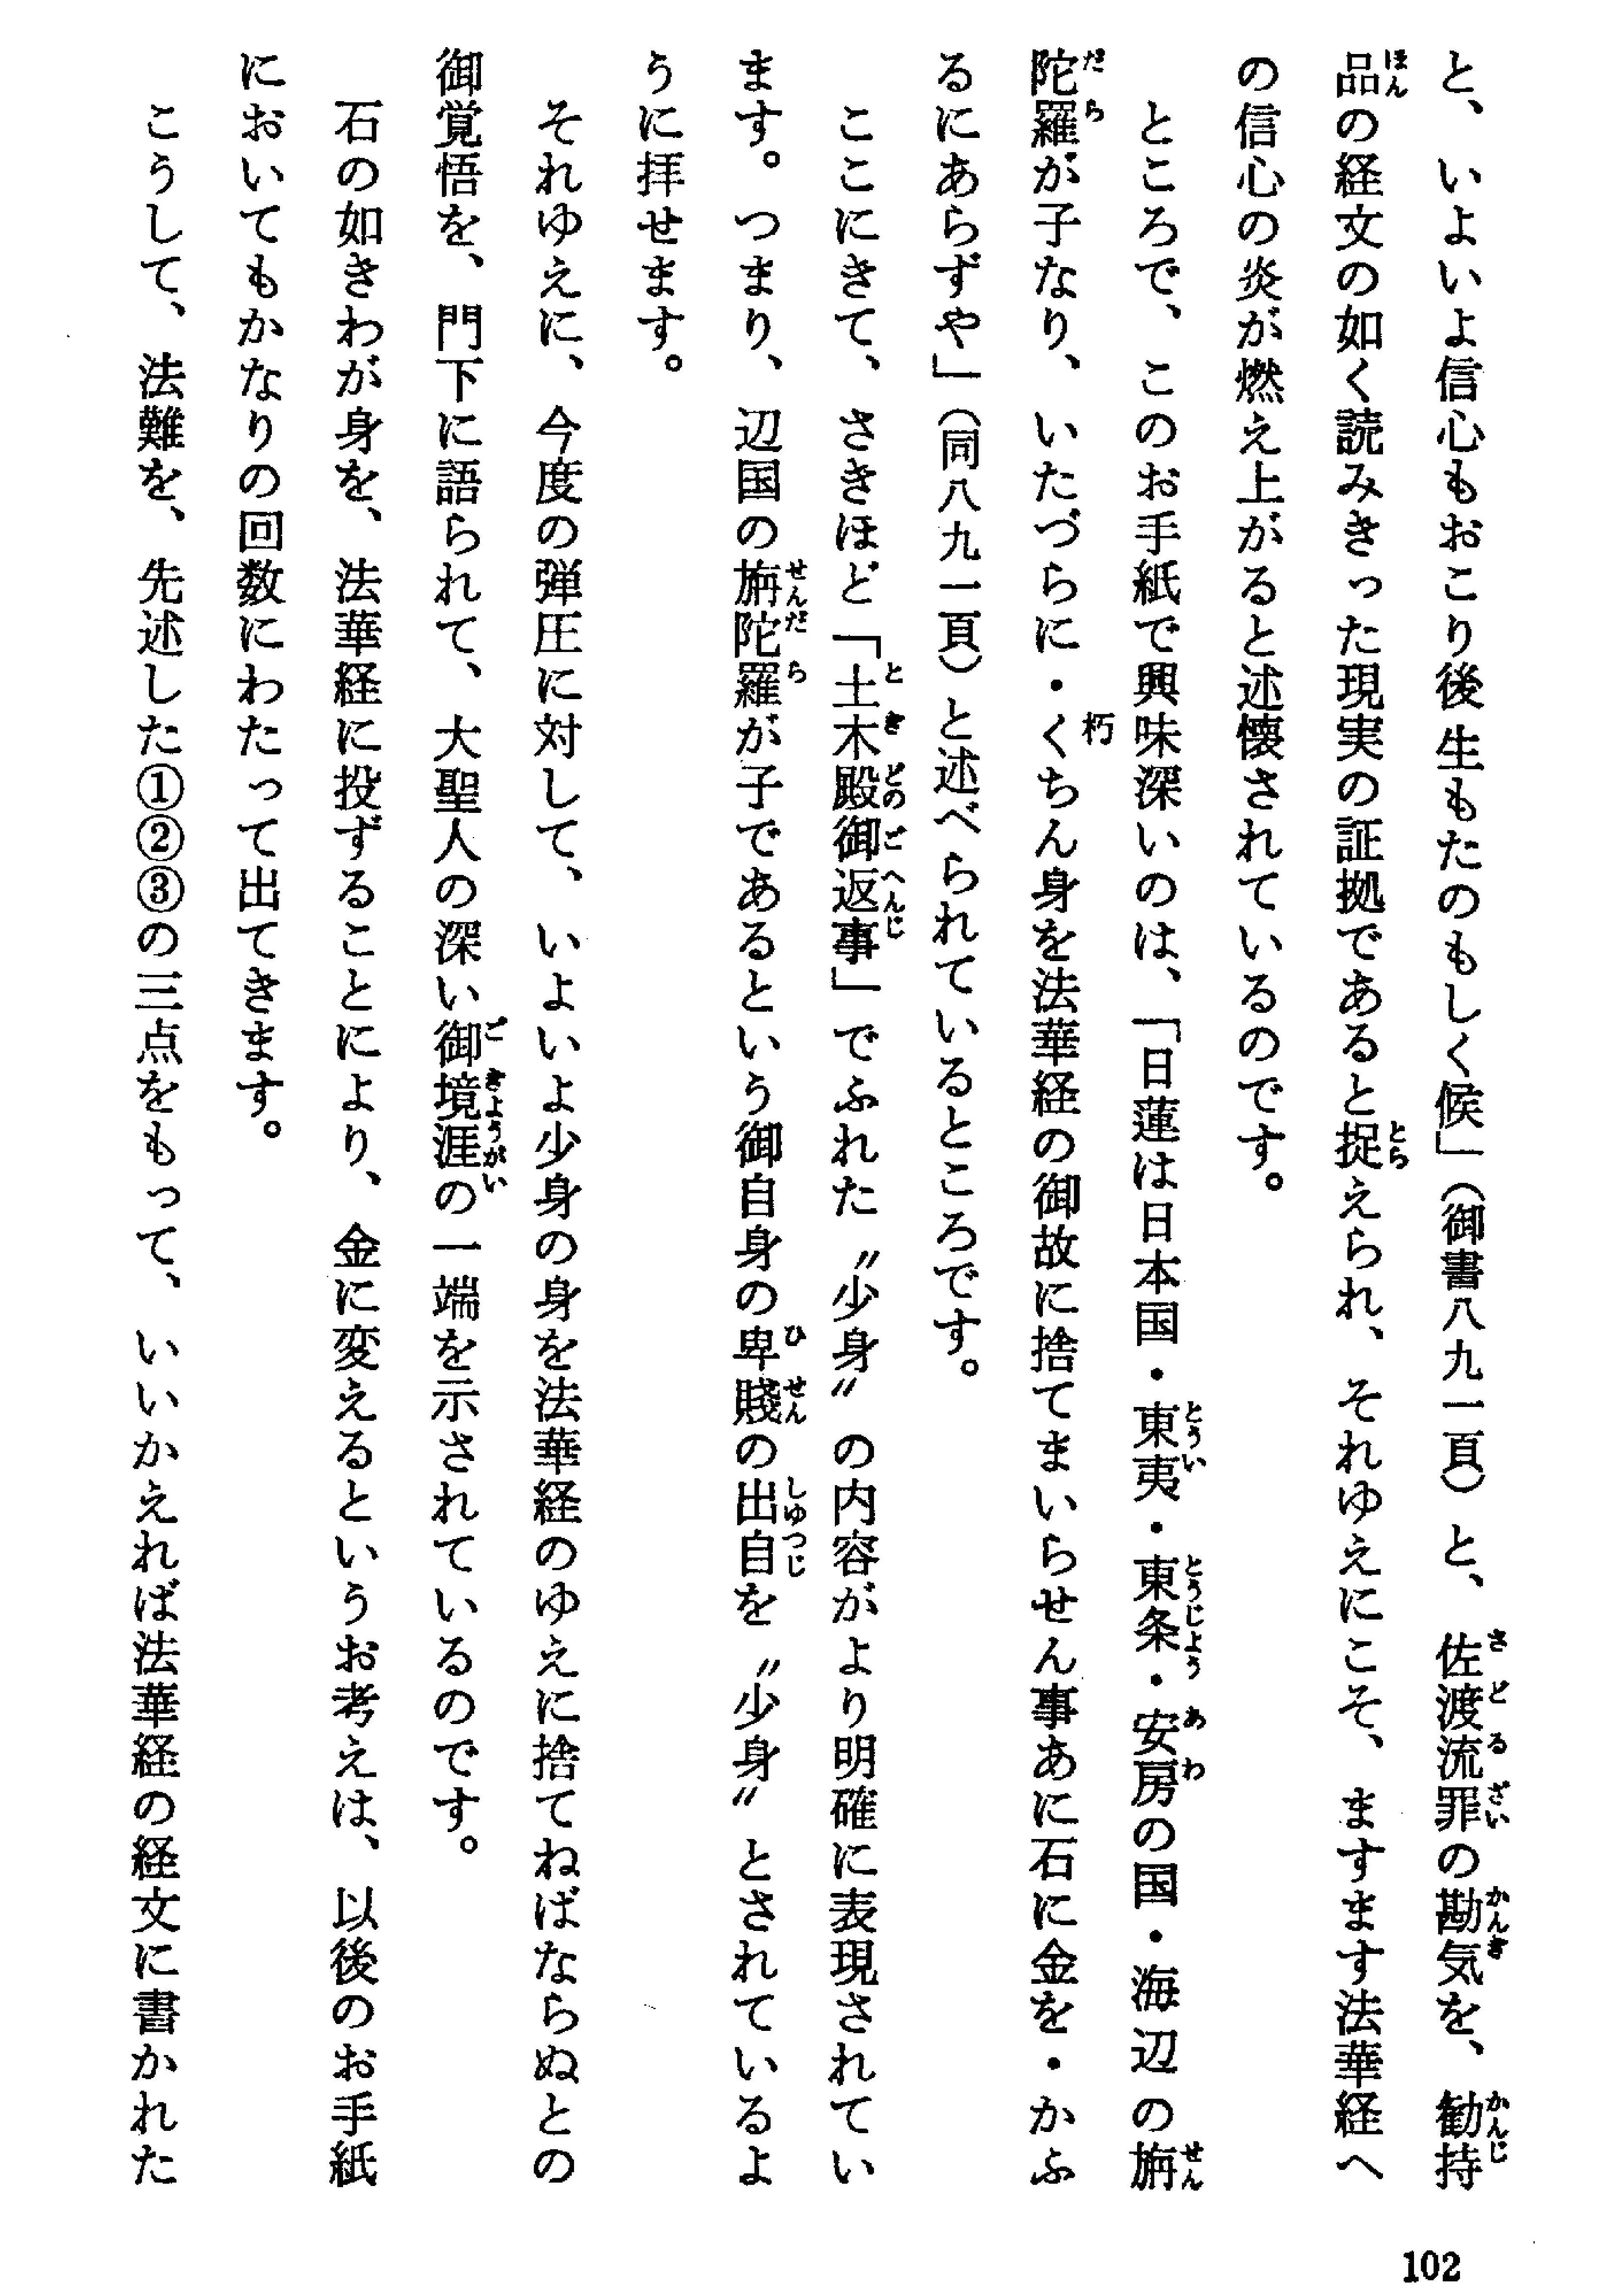 と、いよいよ信心もおこり後生もたのもしく候」（御書八九一頁）と、佐渡流罪の勘気を、勧持
品の経文の如く読みきった現実の証拠であると捉えられ、それゆえにこそ、ますます法華経へ
の信心の炎が燃え上がると述懐されているのです。
ところで、このお手紙で興味深いのは、「日蓮は日本国・東夷・東条・安房の国・海辺の旃
陀羅が子なり、いたづらに・くちん身を法華経の御故に捨てまいらせん事あに石に金を・かふ
るにあらずや」（同八九一頁）と述べられているところです。
ここにきて、さきほど「土木殿御返事」でふれた〝少身〟の内容がより明確に表現されてい
ます。つまり、辺国の旃陀羅が子であるという御自身の卑賤の出自を〝少身〟とされているよ
うに拝せます。
それゆえに、今度の弾圧に対して、いよいよ少身の身を法華経のゆえに捨てねばならぬとの
御覚悟を、門下に語られて、大聖人の深い御境涯の一端を示されているのです。
石の如きわが身を、法華経に投ずることにより、金に変えるというお考えは、以後のお手紙
においてもかなりの回数にわたって出てきます。
こうして、法難を、先述した①②③の三点をもって、いいかえれば法華経の経文に書かれた
102